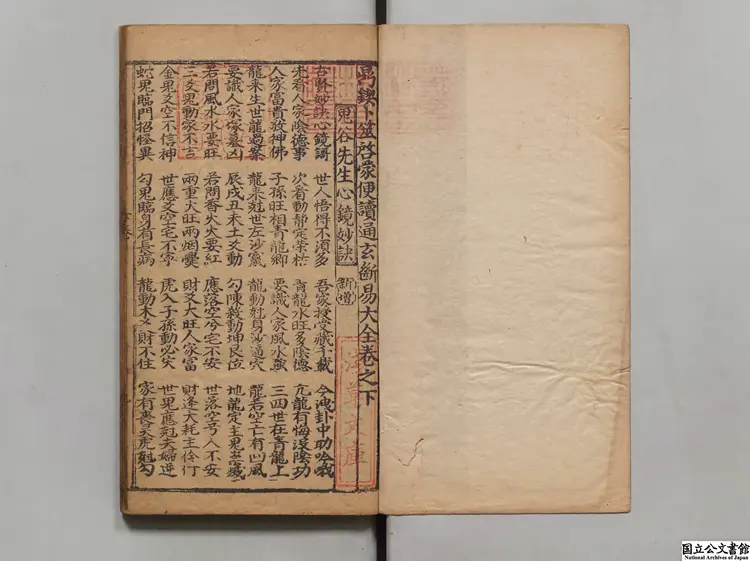 鼎鍥卜筮啓蒙便讀通玄斷易大全卷之下
鬼谷先生心鏡妙訣
古賢妙訣心鏡謌 世人悟得不須多 吾家授受藏千載 今洩卦中助吟哦
先看人家陰德事 次看動靜定榮枯 青龍水旺多陰德 亢龍有悔沒陰功
人家富貴敬神佛 子孫旺相青龍鄉 要識人家風水強 三四世在青龍上
龍來生世龍過案 龍來剋世左沙竄 龍動剋身沙逼穴 龍若空亡有凹風
要識人家塚墓凶 辰戌丑未土爻動 勾陳動坤艮位 地龍定主見
若問風水水要旺 若問香火火要紅 應落空兮宅不安 世落空兮人不安
三爻鬼動家不吉 兩重火旺兩烟爨 財爻大旺人家富 財逢大耗主伶仃
金鬼爻空不信神 世應爻空宅不寧 虎入子孫動必災 世鬼應剋夫婦逆
蛇鬼臨門招怪異 勾鬼臨身有長病 龍動木爻財不住 家有虎剋勾
淺草文庫
国立公文書館
National Archives of Japan